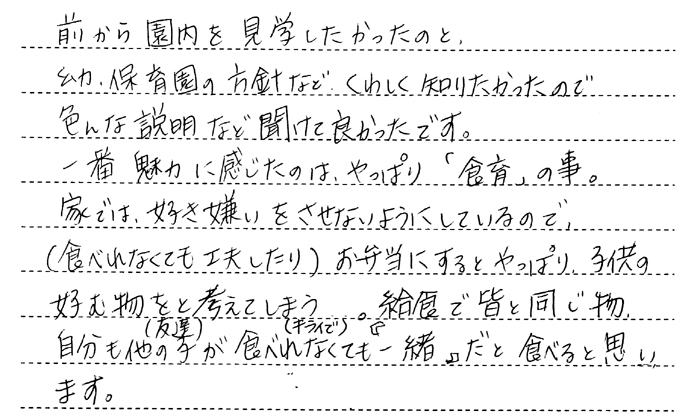 前から園内を見学したかったのと、
幼、保育園の方針など、くわしく知りたかったので
色んな説明など聞けて良かったです。
一番魅力に感じたのは、やっぱり「食育」の事。
家では、好き嫌いをさせないようにしているので、
(食べれなくても工夫したり)お弁当にするとやっぱり、子供の
好む物をと考えてしまう。給食で皆と同じ物、
(友達) (キライで)
自分も他の子が食べれなくても『一緒』だと食べると思い
ます。